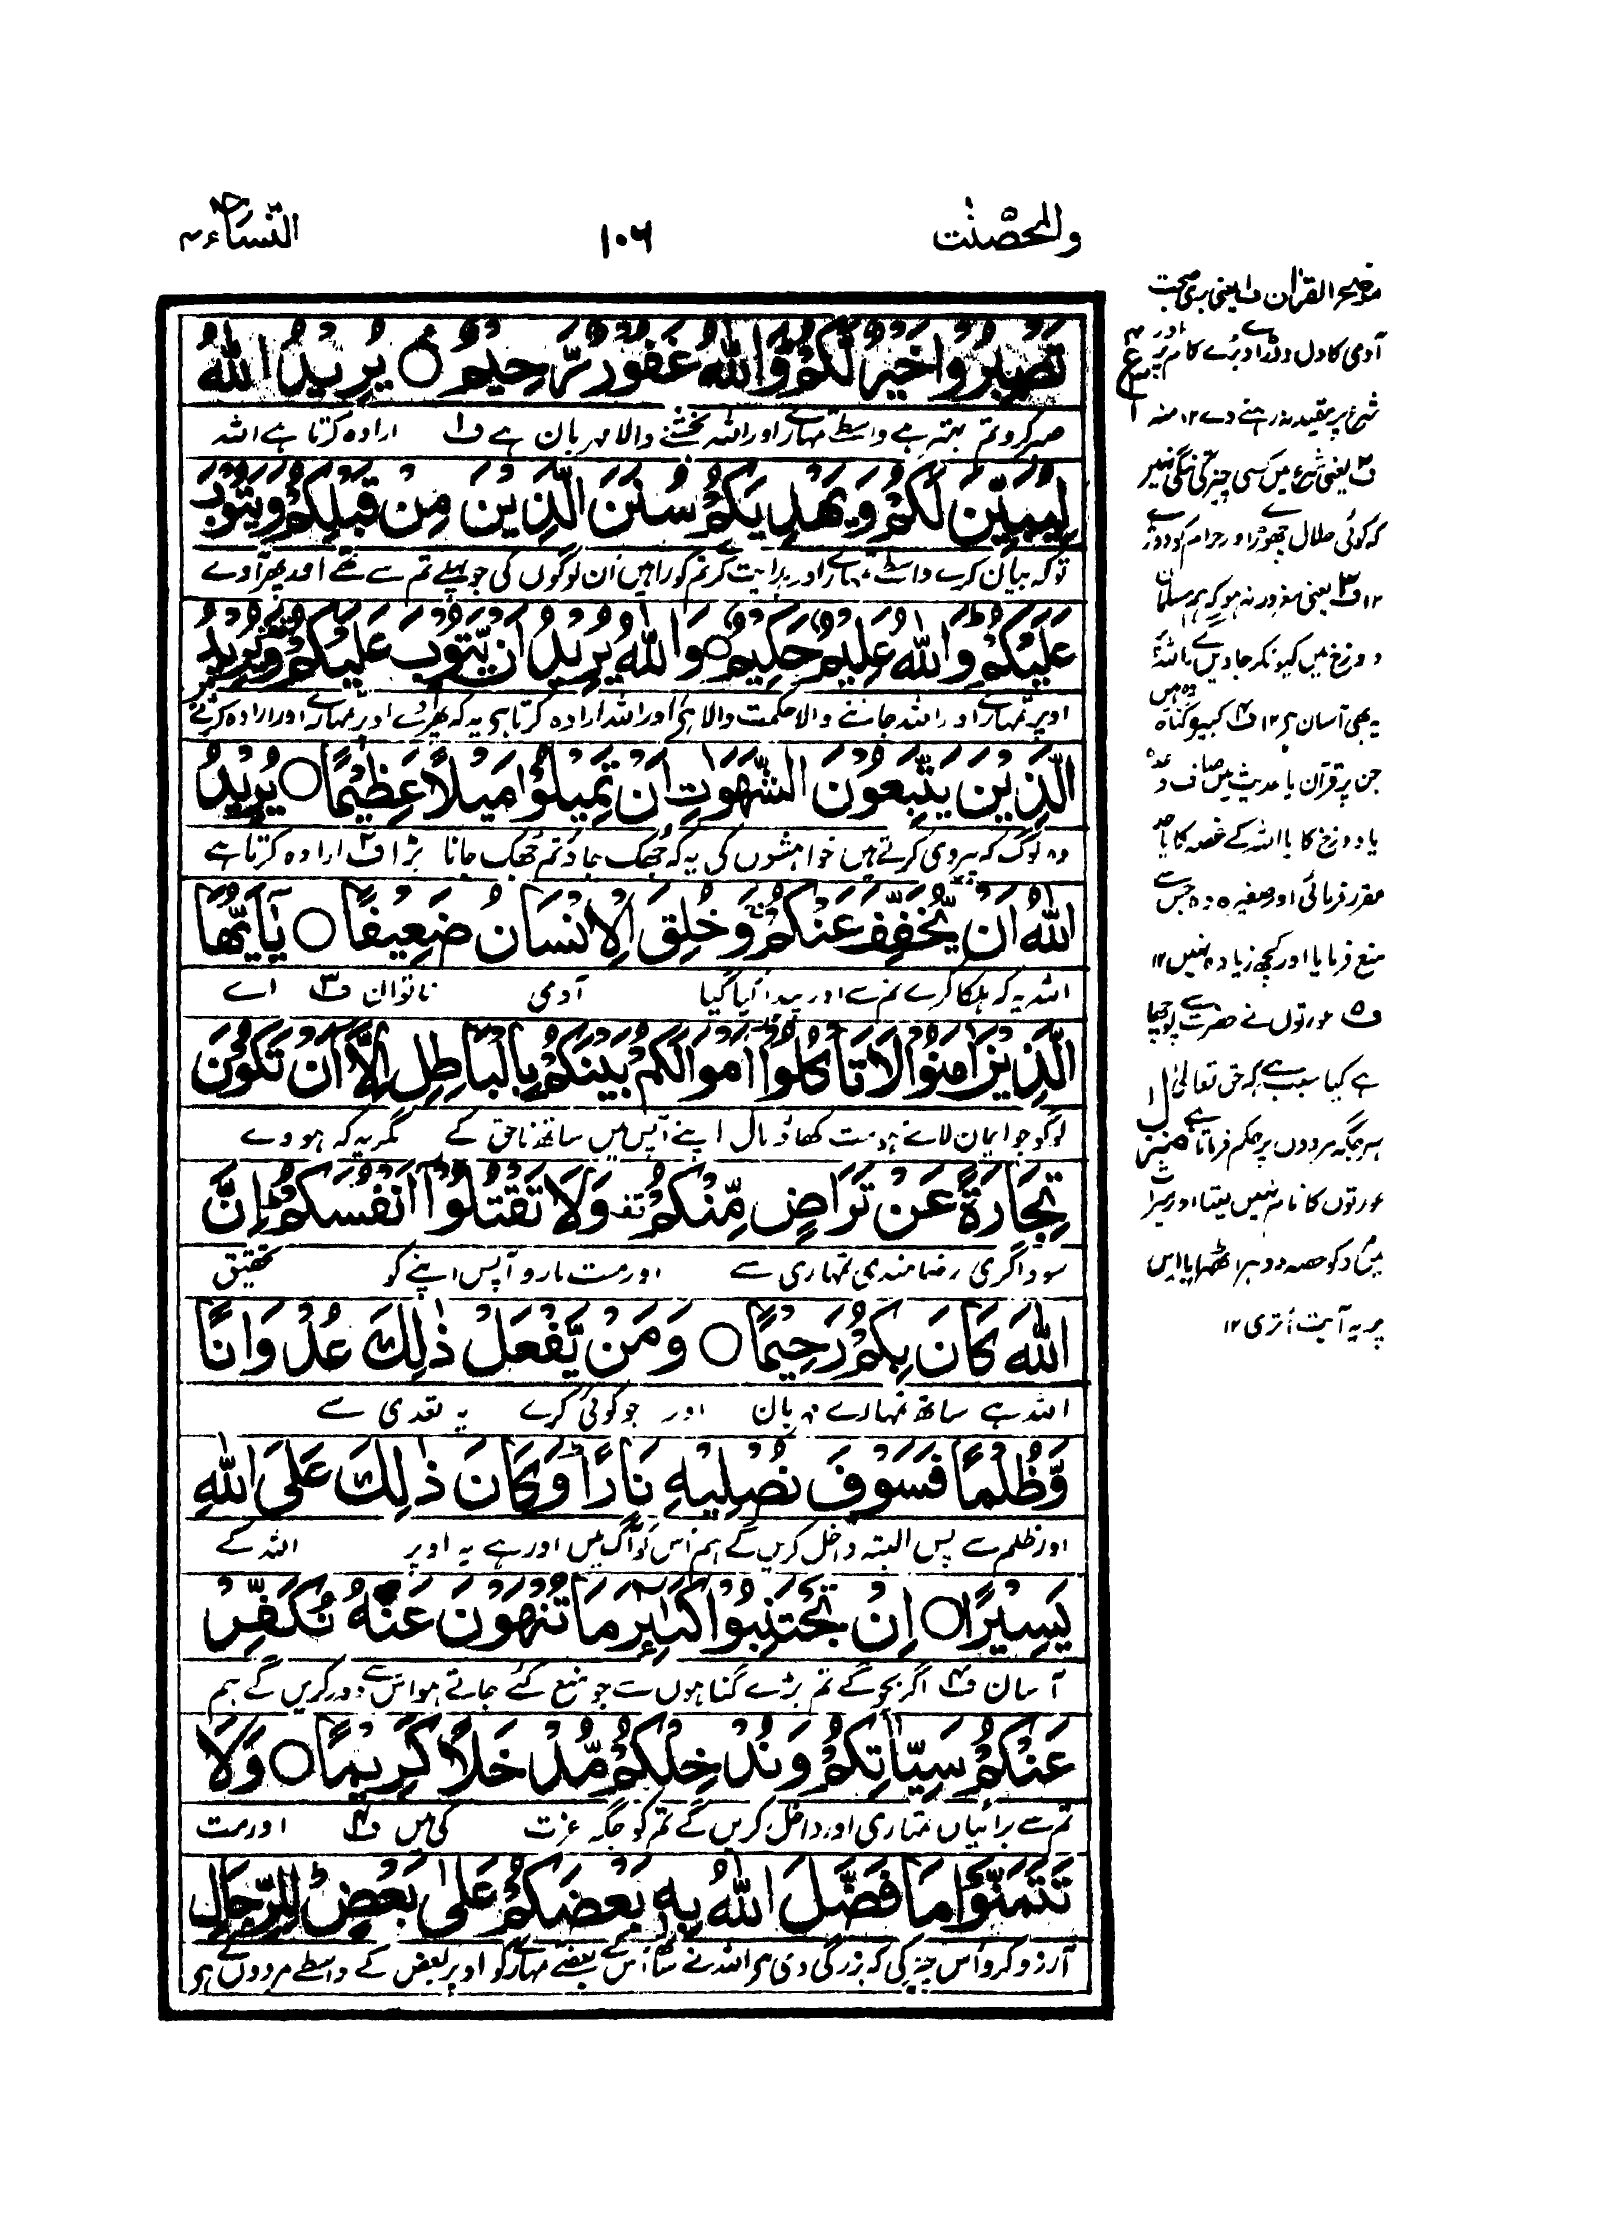 والمحصنٰت
١٠٦
النّساء ٤
تَصْبِرُوْا خَيْرٌ لَّكُمْ ؕ وَاللّٰهُ غَفُوْرٌ رَّحِيْمٌ ۝ يُرِيْدُ اللّٰهُ
صبر کرو تم بہتر ہے واسطے تمہارے اور اللہ بخشنے والا مہربان ہے ف۱ ارادہ کرتا ہے اللہ
لِيُبَيِّنَ لَكُمْ وَيَهْدِيَكُمْ سُنَنَ الَّذِيْنَ مِنْ قَبْلِكُمْ وَيَتُوْبَ
تو کہ بیان کرے واسطے تمہارے اور ہدایت کرے تم کو راہیں ان لوگوں کی جو پہلے تم سے تھے اور پھر آوے
عَلَيْكُمْ ؕ وَاللّٰهُ عَلِيْمٌ حَكِيْمٌ ۝ وَاللّٰهُ يُرِيْدُ اَنْ يَّتُوْبَ عَلَيْكُمْ وَيُرِيْدُ
اوپر تمہارے اور اللہ جاننے والا حکمت والا ہے اور اللہ ارادہ کرتا ہے یہ کہ پھر آوے اوپر تمہارے اور ارادہ کرتے ہیں
الَّذِيْنَ يَتَّبِعُوْنَ الشَّهَوٰتِ اَنْ تَمِيْلُوْا مَيْلًا عَظِيْمًا ۝ يُرِيْدُ
وہ لوگ کہ پیروی کرتے ہیں خواہشوں کی یہ کہ جھک جاؤ تم جھک جانا بڑا ف۲ ارادہ کرتا ہے
اللّٰهُ اَنْ يُّخَفِّفَ عَنْكُمْ ۚ وَخُلِقَ الْاِنْسَانُ ضَعِيْفًا ۝ يٰۤاَيُّهَا
اللہ یہ کہ ہلکا کرے تم سے اور پیدا کیا گیا آدمی ناتوان ف۳ اے
الَّذِيْنَ اٰمَنُوْا لَا تَاْكُلُوْۤا اَمْوَالَكُمْ بَيْنَكُمْ بِالْبَاطِلِ اِلَّاۤ اَنْ تَكُوْنَ
لوگو جو ایمان لائے ہو مت کھاؤ مال اپنے آپس میں ساتھ ناحق کے مگر یہ کہ ہووے
تِجَارَةً عَنْ تَرَاضٍ مِّنْكُمْ قف وَلَا تَقْتُلُوْۤا اَنْفُسَكُمْ ؕ اِنَّ
سوداگری رضامندی تمہاری سے اور مت مارو آپس اپنے کو تحقیق
اللّٰهَ كَانَ بِكُمْ رَحِيْمًا ۝ وَمَنْ يَّفْعَلْ ذٰلِكَ عُدْوَانًا
اللہ ہے ساتھ تمہارے مہربان اور جو کوئی کرے یہ تعدی سے
وَّظُلْمًا فَسَوْفَ نُصْلِيْهِ نَارًا ؕ وَكَانَ ذٰلِكَ عَلَى اللّٰهِ
اور ظلم سے پس البتہ داخل کریں گے ہم اس کو آگ میں اور ہے یہ اوپر اللہ کے
يَسِيْرًا ۝ اِنْ تَجْتَنِبُوْا كَبَآئِرَ مَا تُنْهَوْنَ عَنْهُ نُكَفِّرْ
آسان ف۴ اگر بچو گے تم بڑے گناہوں سے جو منع کئے جاتے ہو اس سے دور کریں گے ہم
عَنْكُمْ سَيِّاٰتِكُمْ وَنُدْخِلْكُمْ مُّدْخَلًا كَرِيْمًا ۝ وَلَا
تم سے برائیاں تمہاری اور داخل کریں گے تم کو جگہ عزت کی میں ف۴ اور مت
تَتَمَنَّوْا مَا فَضَّلَ اللّٰهُ بِهٖ بَعْضَكُمْ عَلٰى بَعْضٍ ؕ لِلرِّجَالِ
آرزو کرو اس چیز کی کہ بزرگی دی ہے اللہ نے ساتھ اس کے بعضے تمہارے کو اوپر بعض کے واسطے مردوں کے ہے
موضح القرآن ف۱ یعنی بری صحبت
آدمی کا دل دوڑاوے برے کام پر اور
شرع پر مقید نہ رہنے دے ۱۲ منہ
ف۲ یعنی شرع میں کسی چیز کی تنگی نہیں
کہ کوئی حلال چھوڑے اور حرام کو دوڑے
۱۲ ف۳ یعنی مغرور نہ ہو کہ ہم مسلمان
دوزخ میں کیونکر جاویں گے اللہ پر
یہ بھی آسان ہے ۱۲ ف۴ کبیرہ گناہ وہ ہیں
جن پر قرآن یا حدیث میں صاف وعدہ
یا دوزخ کا یا اللہ کے غصہ کا یا حد
مقرر فرمائی اور صغیرہ وہ جس سے
منع فرمایا اور کچھ زیادہ نہیں ۱۲
ف۵ عورتوں نے حضرت سے پوچھا
ہے کیا سبب ہے کہ حق تعالیٰ
ہر جگہ مردوں پر حکم فرماتا ہے
عورتوں کا نام نہیں لیتا اور میراث
میں مرد کو حصہ دوہرا ٹھہرایا اس
پر یہ آیت اتری ۱۲